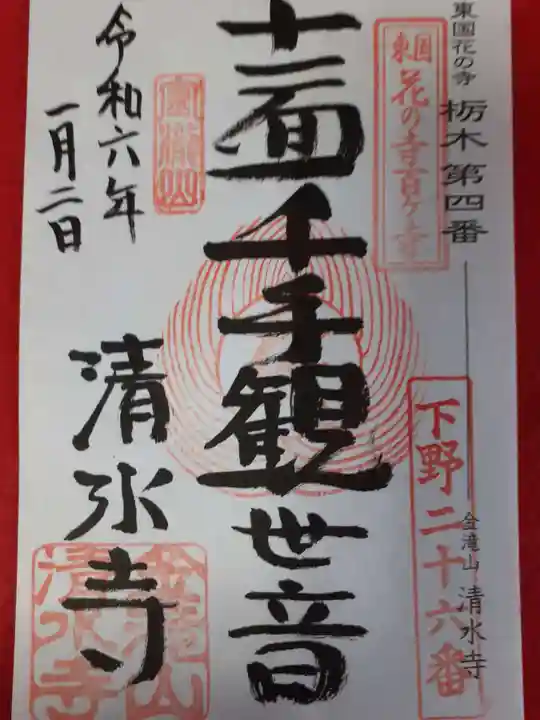 東国花の寺 栃木 第四番
金滝山 清水寺
東国
花の寺百ヶ寺
下野二十六番
十一面千手観世音
令和六年
一月二日
清水寺
金滝山
清水寺